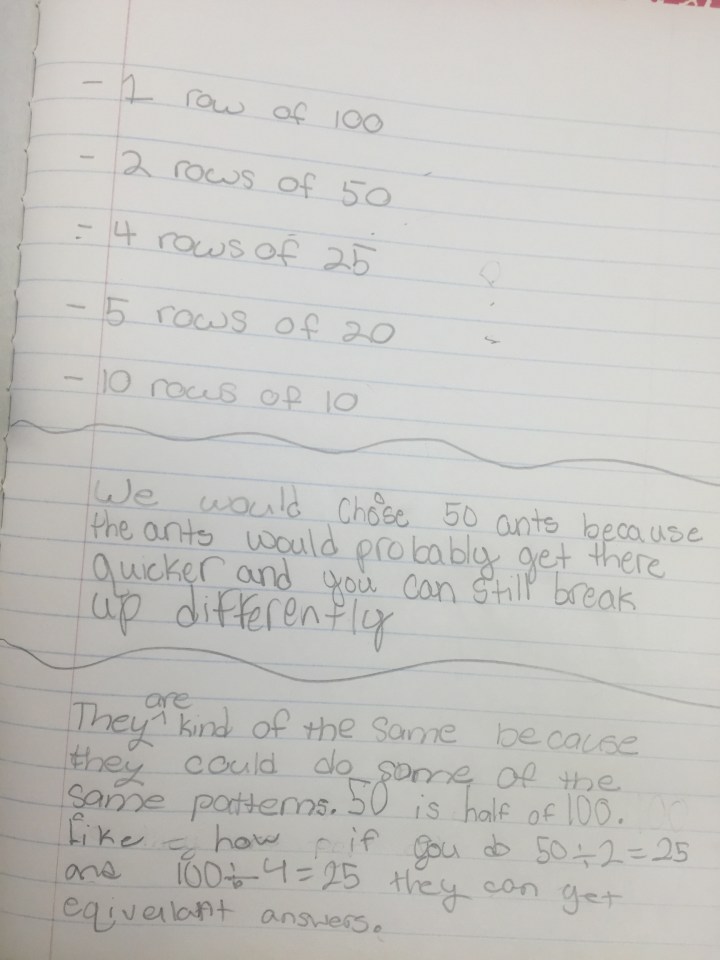 - 1 row of 100
- 2 rows of 50
- 4 rows of 25
- 5 rows of 20
- 10 rows of 10
We would chose 50 ants because
the ants would probably get there
quicker and you can still break
up differently
They are kind of the same because
they could do some of the
same patterns. 50 is half of 100.
Like how if you do 50÷2=25
and 100÷4=25 they can get
eqivelant answers.